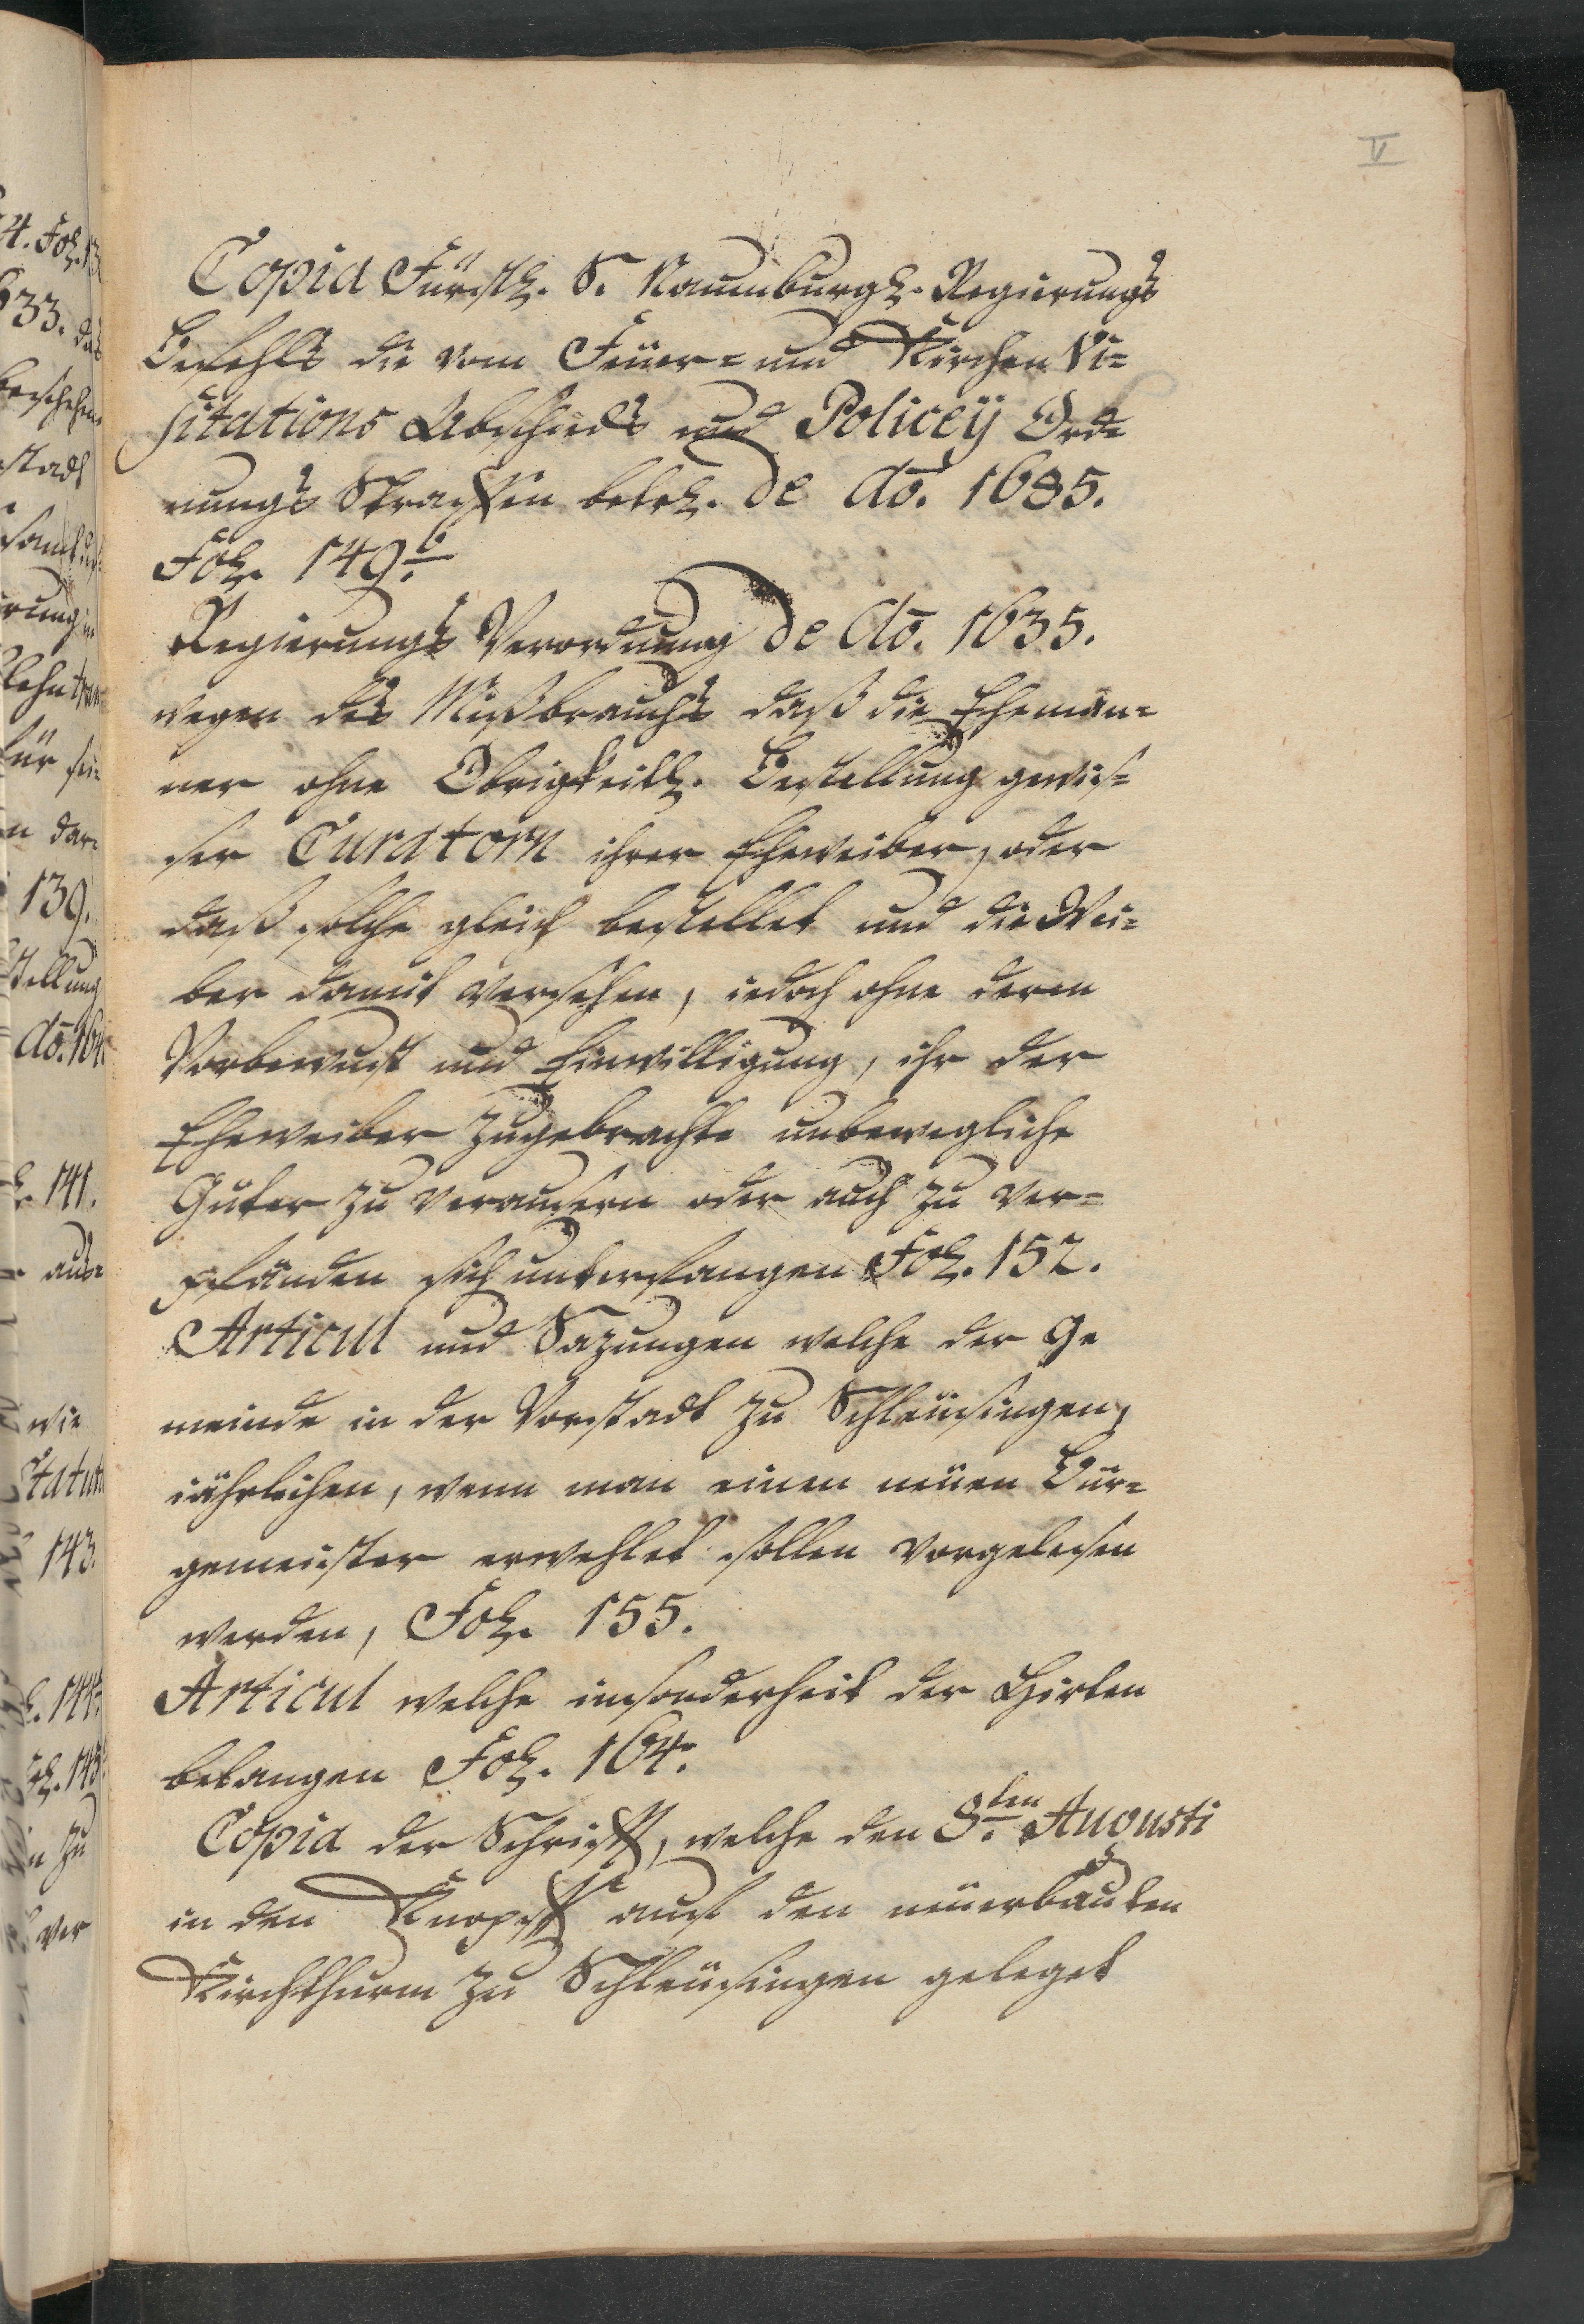 V
Copia Fürstl. S. Naumburgl. Regierungs
Befehls die vom Feüer= und Kirchen Vi=
sitations Abschieds und Policeÿ Ord=
nungs Straffen betrl. de ao. 1685.
Fol. 149.b
Regierungs Verordnung de ao. 1635.
wegen des Mißbrauchs daß die Ehemän=
ner ohne Obrigkeitl. Bestellung gewis=
ser Curatorn ihrer Eheweiber, oder
daß solche gleich bestellet und die Wei=
ber damit versehen, iedoch ohne deren
Vorbewust und Einwilligung, ihr der
Eheweiber zugebrachte unbewegliche
Güter zu verausern oder auch zu ver=
pfänden sich unterfangen Fol. 152.
Articul und Sazungen welche der Ge
meinde in der Vorstadt zu Schleüsingen,
iährlichen, wenn man einen neüen Bür=
gemeister erwehlet sollen vorgelesen
werden, Fol. 155.
Articul welche insonderheit der Hirten
belangen Fol. 164.
Copia der Schrifft, welche den 8.ten Augusti
in den Knopff auf den neüerbauten
Kirchthurm zu Schleüsingen geleget